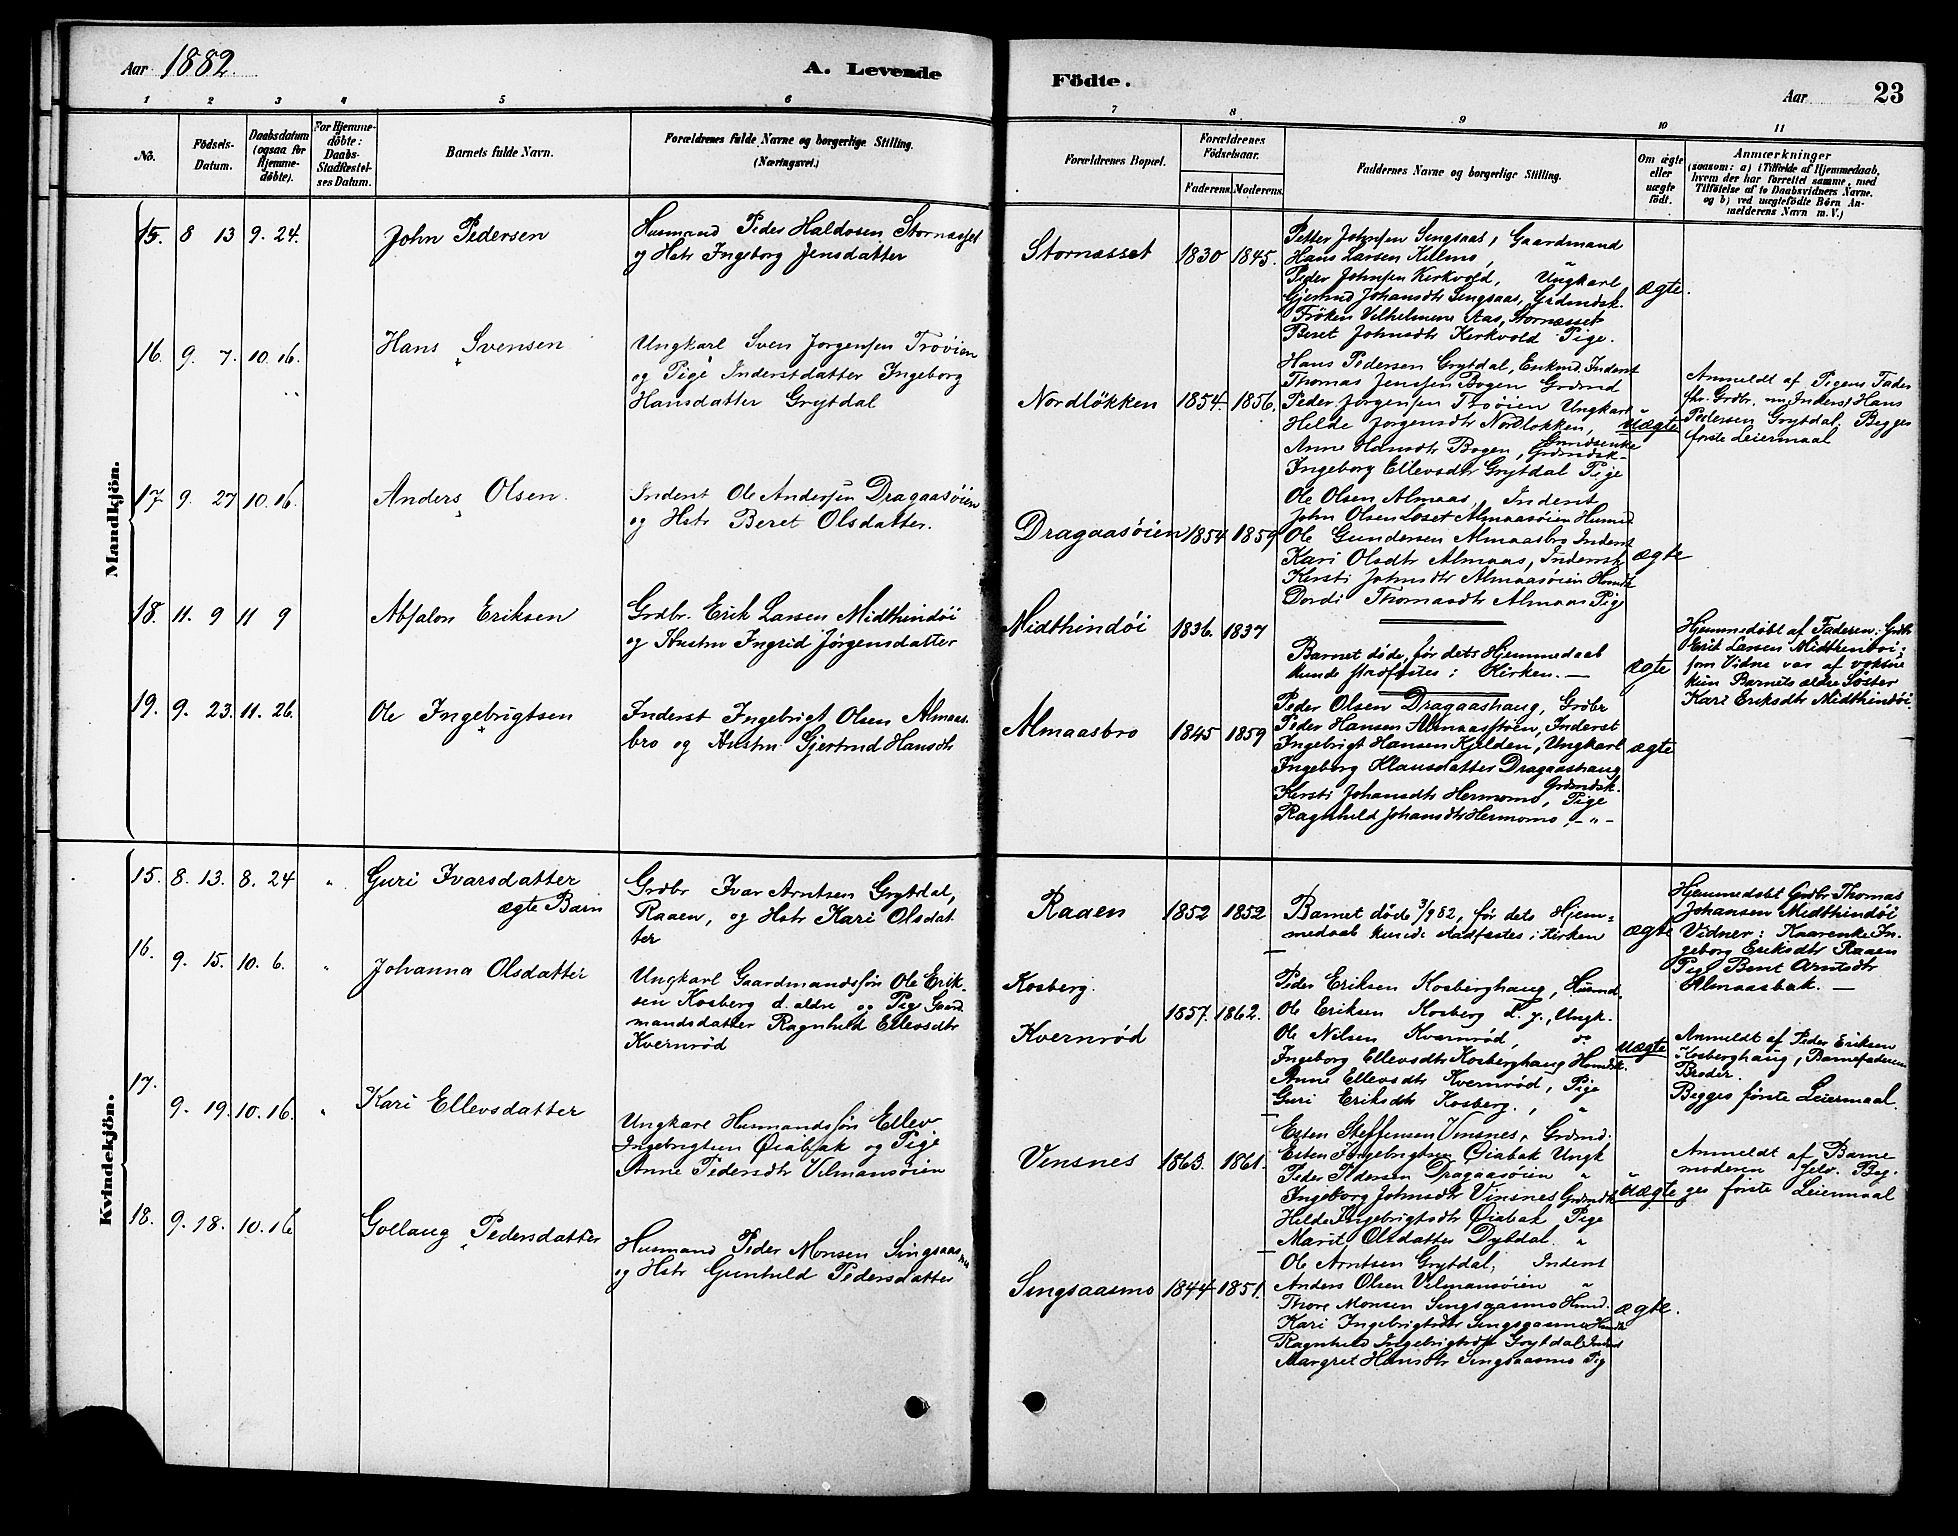 Aar 1882.
A. Levende
Födte.
Aar
23
1 2 3 4 5 6 7 8 9 10 11
No.
Födsels-
Datum.
Daabsdatum
(ogsaa for
Hjemme-
döbte).
For Hjemme-
döbte:
Daabs-
Stadfæstel-
ses Datum.
Barnets fulde Navn.
Forældrenes fulde Navne og borgerlige Stilling.
(Næringsvei.)
Forældrenes Bopæl.
Forældrenes
Födselsaar.
Faderens. Moderens.
Faddernes Navne og borgerlige Stilling.
Om ægte
eller
uægte
födt.
Anmærkninger
(saasom: a) i Tilfælde af Hjemmedaab,
hvem der har forrettet samme, med
Tilföielse af to Daabsvidners Navne.
og b) ved uægtefödte Börn An-
melderens Navn m. V.)
Mandkjön.
15. 8 13 9. 24.
John Pedersen
Husmand Peder Haldosen Stornæsset
og Hstr Ingeborg Jensdatter
Stornæsset
1830 1845.
Petter Johnsen Singsaas, Gaardmand
Hans Larsen Killmo, "
Peder Johnsen Kirkvold, Ungkarl
Gjertrud Johansdtr Singsaas, Grdmdsk.
Fröken Vilhelmine Aas, Stornæsset
Beret Johnsdtr Kirkvold Pige.
ægte.
16. 9. 7. 10. 16.
Hans Svensen
Ungkarl Sven Jorgensen Trööien
og Pige Inderstdatter Ingeborg
Hansdatter Grytdal
Nordlökken
1854. 1856.
Hans Pedersen Grytdal, Enkmd. Inderst
Thomas Jensen Bogen Grdmnd
Peder Jorgensen Trööien Ungkarl
Helde Jorgensdtr Nordlokken,
Anne Hansdtr Bogen, Grdmdsk.
Ingeborg Ellevsdtr Grytdal Pige
uægte
Anmeldt af Pigens Fader
fhr. Grdbr. nu Inderst Hans
Pedersen Grytdal. Begges
förste Leiermaal
17. 9. 27 10. 16.
Anders Olsen.
Inderst Ole Andersen Dragaasöien
og Hstr Beret Olsdatter.
Dragaasöien
1854 1859
Ole Olsen Almaas, Inderst
John Olsen Loset Almaasöien Husmd
Ole Gundersen Almaasbro Inderst
Kari Olsdtr Almaas, Inderst
Kersti Johnsdtr Almaasöien
Dordi Thomasdtr Almaas Pige
ægte
18. 11. 9 11 9
Absalon Eriksen
Grdbr. Erik Larsen Midthindöi
og Hustru Ingrid Jørgensdatter
Midthindöi
1836. 1837
Barnet döde, för dets Hjemmedaab
kunde stadfæstes i Kirken. —
ægte
Hjemmedöbt af Faderen: Grdbr
Erik Larsen Midthindöi;
som Vidne var af voksne
kun Barnets ældre Söster
Kari Eriksdtr Midthindöi.
19. 9. 23. 11. 26.
Ole Ingebrigtsen
Inderst Ingebrigt Olsen Almaas-
bro og Hustru Gjertrud Hansdtr
Almaasbro
1845 1859
Peder Olsen Dragaashaug, Grdbr
Peder Hansen Almaasöien, Inderst
Ingebrigt Hansen Kjelden, Ungkarl
Ingeborg Klausdatter Dragaashaug
Grdmdsk.
Kersti Johansdtr Hermomo, Pige
Ragnhild Johansdtr Hermomo, - " -
ægte
Kvindekjön.
15. 8. 13. 8. 24 "
Guri Ivarsdatter
ægte Barn
Grdbr Ivar Arntsen Grytdal,
Raaen, og Hstr Kari Olsdat
ter
Raaen
1852 1852
Barnet döde 3/9 82, för dets Hjem-
medaab kunde stadfæstes i Kirken
ægte
Hjemmedöbt Grdbr Thomas
Johansen Midthindöi
Vidner: Kaarenke In-
geborg Eriksdtr Raaen
Pige Berit Arntsdtr
Almaasbak. —
16. 9. 15. 10. 6. "
Johanna Olsdatter
Ungkarl Gaardmandssön Ole Erik-
sen Kosberg d. ældre og Pige Gaard
mandsdatter Ragnhild Ellevsdtr
Kvernröd
Kosberg.
Kvernröd
1857. 1862.
Peder Eriksen Kosberghaug, Husmd.
Ole Eriksen Kosberg d. y., Ungk.
Ole Nilsen Kvarnröd, do
Ingeborg Ellevsdtr Kosberghaug
Anne Ellevsdtr Kvernröd, Pige
Guri Eriksdtr Kosberg., "
uægte
Anmeldt af Peder Eriksen
Kosberghaug, Barnefaderens
Broder.
Begges förste Leiermaal.
17. 9. 19. 10. 16. "
Kari Ellevsdatter
Ungkarl Husmandssön Ellev
Ingebrigtsen Øiabak og Pige
Anne Pedersdtr Vilmansöien
Vinsnes
1863. 1861.
Esten Steffensen Vinsnes, Grdmd.
Esten Ingebrigtsen Øiabak Ungk
Peder Pedersen Dragaasöien "
Ingeborg Johnsdtr Vinsnes Grdmdsk
Hilde Ingebrigtsdtr Øiabak Pige
Marit Olsdatter Dybdal. "
uægte
Anmeldt af Barne
moderen selv. Beg-
ges förste Leiermaal
18. 9. 18. 10. 16
Gollaug Pedersdatter
Husmand Peder Monsen Singsaasmo
og Hstr Gunhild Pedersdatter
Singsaasmo
1844 1851.
Ole Arntsen Grytdal, Inderst
Anders Olsen Vilmansöien "
Thore Monsen Singsaasmo Husmd.
Kari Ingebrigtsdtr Singsaasmo
Ragnhild Ingebrigtsdtr Grytdal, Inderst
Margret Hansdtr Singsaasmo Pig
ægte.